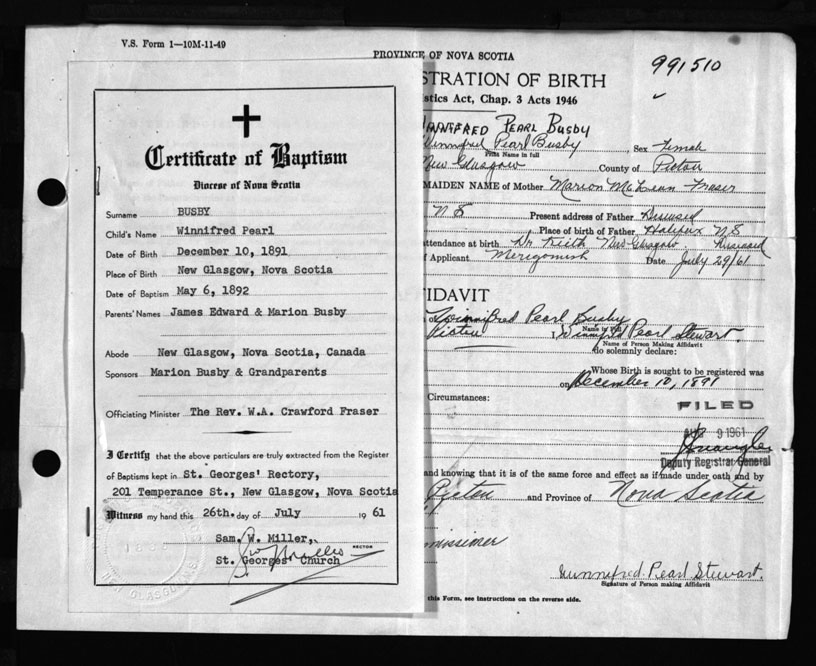 V.S. Form 1—10M-11-49
PROVINCE OF NOVA SCOTIA
991510
STRATION OF BIRTH
istics Act, Chap. 3 Acts 1946
✝
Certificate of Baptism
Diocese of Nova Scotia
Surname BUSBY
Child's Name Winnifred Pearl
Date of Birth December 10, 1891
Place of Birth New Glasgow, Nova Scotia
Date of Baptism May 6, 1892
Parents' Names James Edward & Marion Busby
Abode New Glasgow, Nova Scotia, Canada
Sponsors Marion Busby & Grandparents
Officiating Minister The Rev. W.A. Crawford Fraser
I Certify that the above particulars are truly extracted from the Register
of Baptisms kept in St. Georges' Rectory,
201 Temperance St., New Glasgow, Nova Scotia
Witness my hand this 26th. day of July 1961
Sam. W. Miller,
RECTOR
St. Georges Church
PEARL Busby
Winnifred Pearl Busby Sex Female
Print Name in full
New Glasgow County of Pictou
MAIDEN NAME of Mother Marion McLean Fraser
N S Present address of Father Deceased
Place of birth of Father Halifax N S
attendance at birth Dr. Keith New Glasgow Deceased
f Applicant Merigomish Date July 29/61
FIDAVIT
of Winnifred Pearl Busby
Name in Full
Pictou , Winnifred Pearl Stewart.
Name of Person Making Affidavit
do solemnly declare:
Whose Birth is sought to be registered was
on December 10, 1891
Circumstances:
FILED
AUG 9 1961
Deputy Registrar General
and knowing that it is of the same force and effect as if made under oath and by
Pictou and Province of Nova Scotia
mmissioner
Winnifred Pearl Stewart.
Signature of Person making Affidavit
this Form, see Instructions on the reverse side.